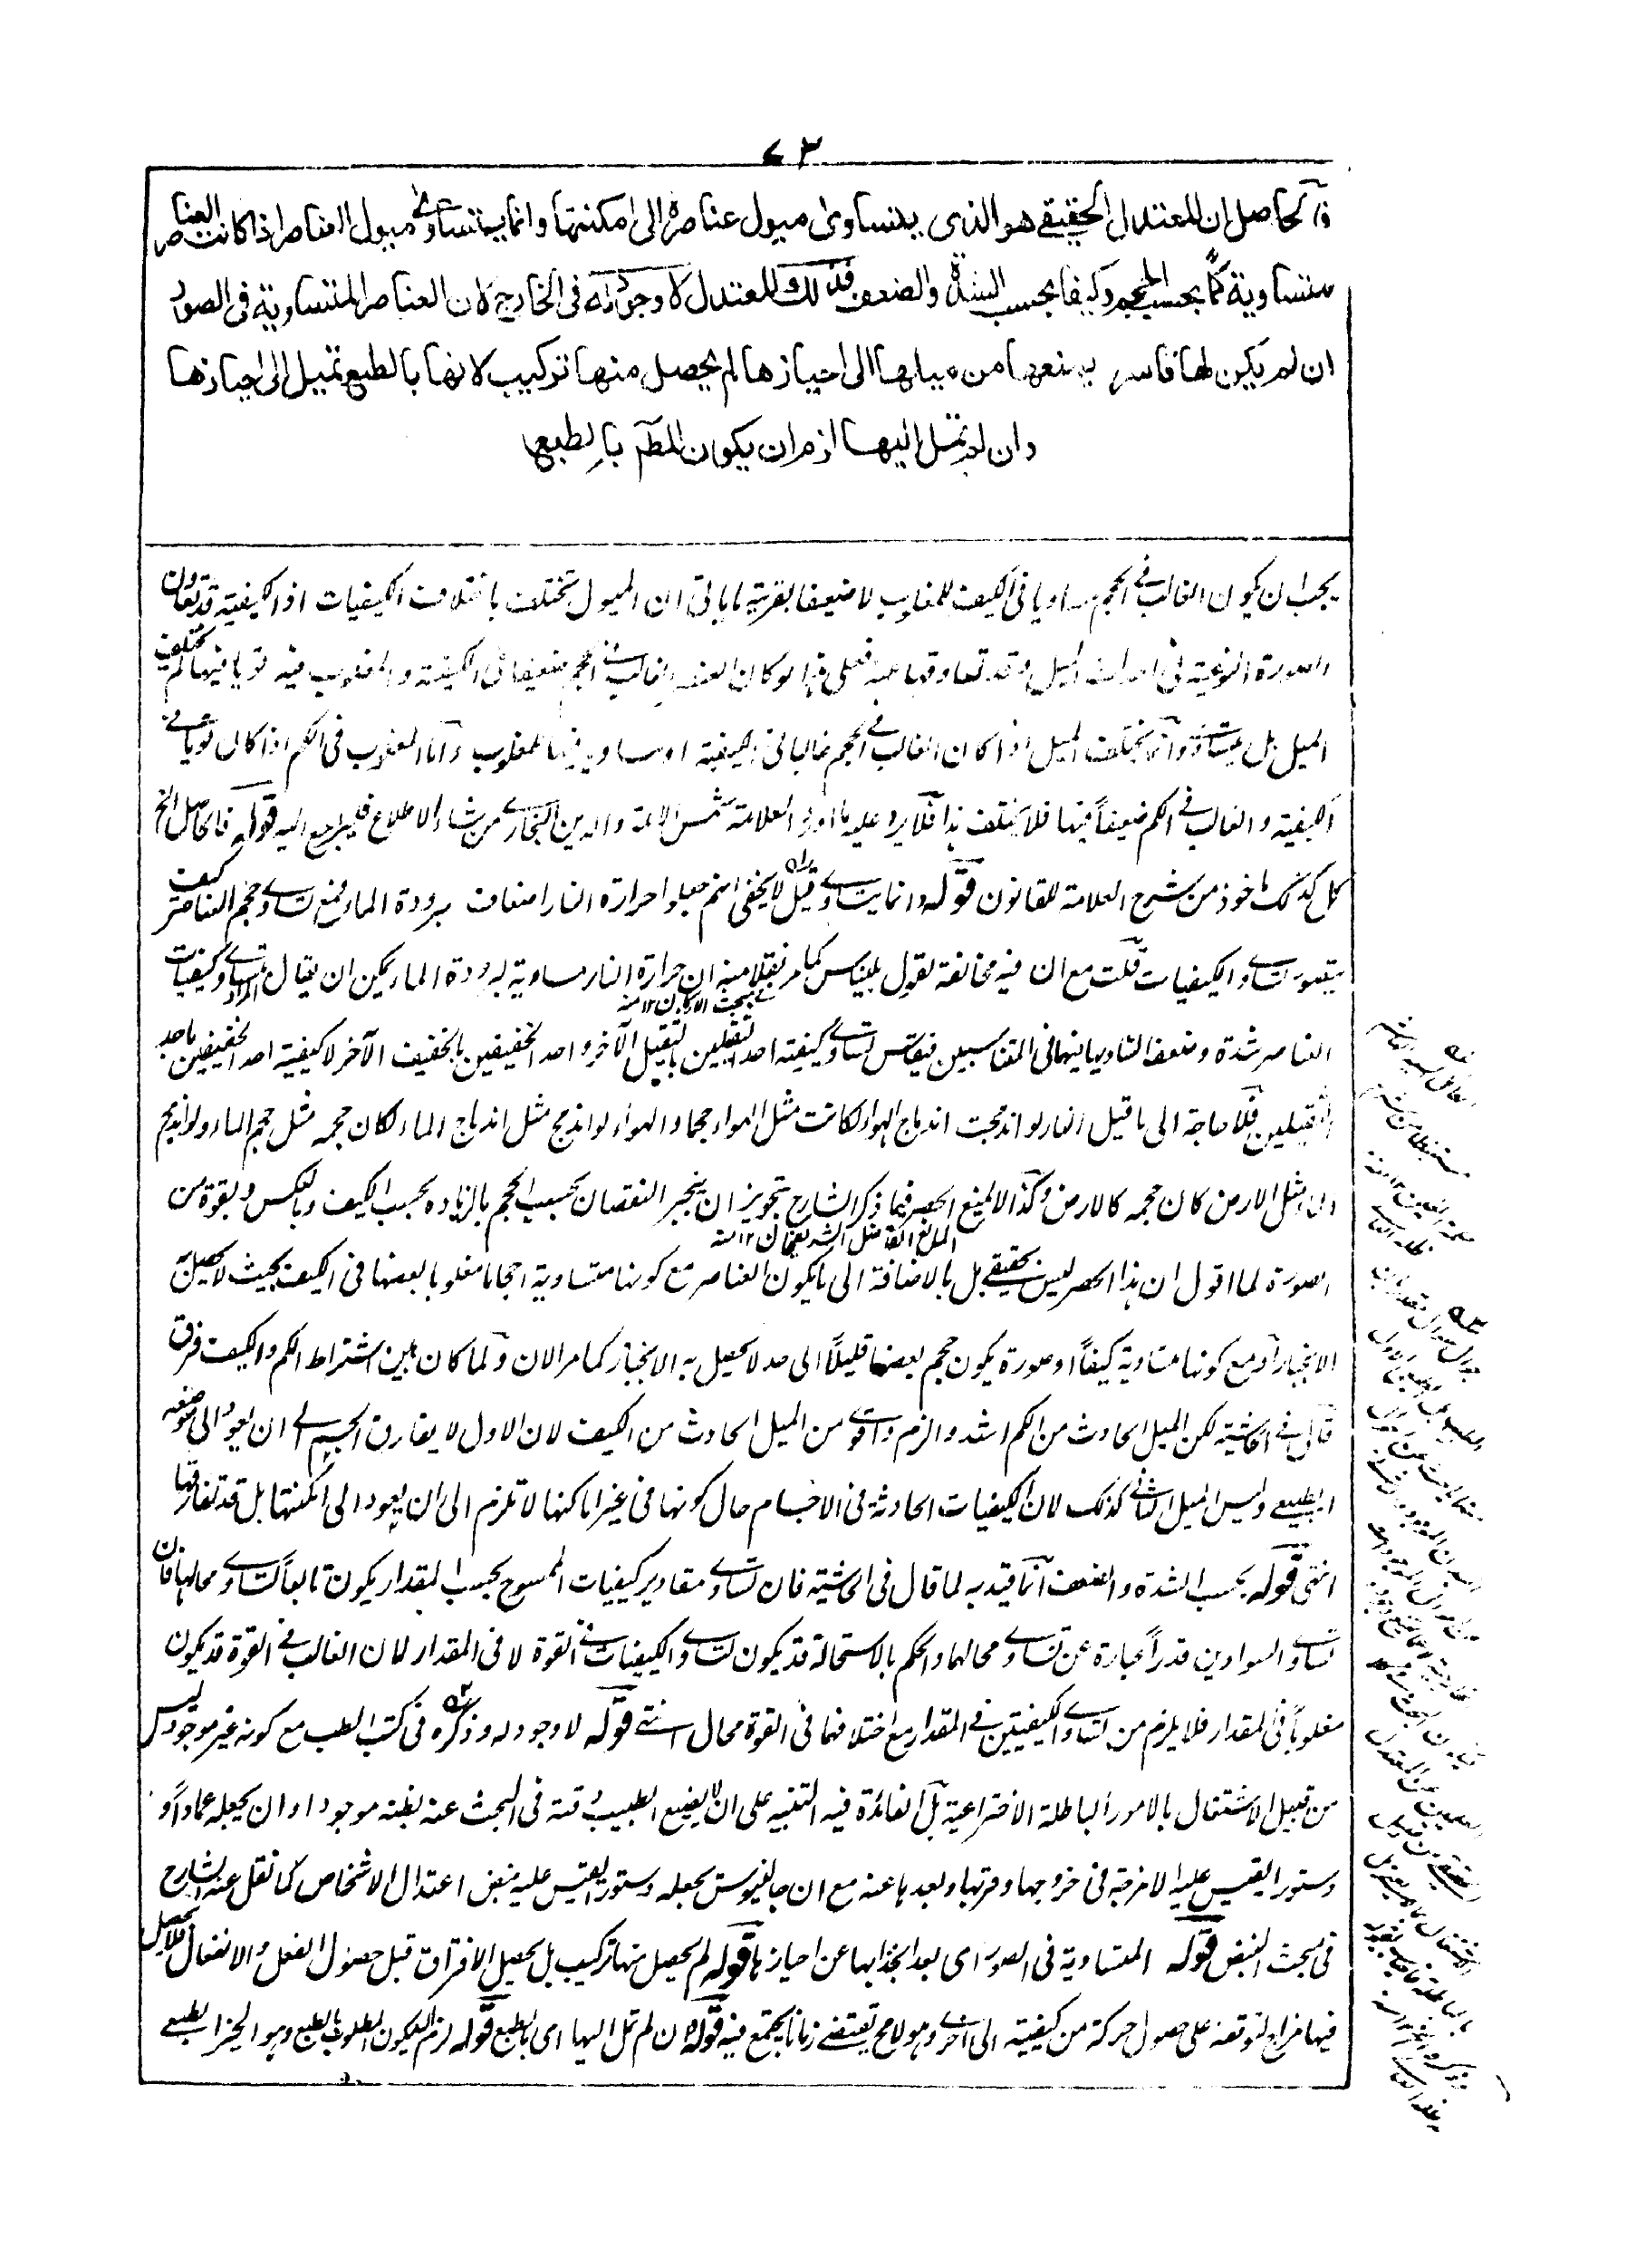 ٧٣
فالحاصل ان المعتدل الحقيقي هو الذي يتساوى ميول عناصره الى امكنتها وانما يتساوى ميول العناصر اذا كانت العناصر
متساوية كمًّا بحسب الحجم وكيفا بحسب الشدة والضعف فذلك المعتدل لا وجود له في الخارج لان العناصر المتساوية في الصور
ان لم يكن لها قاسر يمنعها من ميلها الى احيازها لم يحصل منها تركيب لانها بالطبع تميل الى احيازها
وان لم تمل اليها لزم ان يكون المط بالطبع
يجب ان يكون الغالب في الحجم مساويا في الكيف للمغلوب لا ضعيفا بقرينة ما ياتي ان الميول تختلف باختلاف الكيفيات اذ الكيفية قد تعاون
الصورة النوعية في احداث الميل وقد تعاوقها عنه فعلى هذا لو كان العنصر الغالب في الحجم ضعيفا في الكيفية والمغلوب فيه قويا فيها لم يختلف
الميل بل يتساوى وانما يختلف الميل اذا كان الغالب في الحجم غالبا في الكيفية او مساويا فيها للمغلوب واما المغلوب في الكم اذا كان قويا في
الكيفية والغالب في الكم ضعيفاً فيها فلا يختلف هذا فلا يرد عليه ما اورد العلامة شمس الائمة والدين البخاري من شاء الاطلاع فليراجع اليه قوله فالحاصل الخ
كل ذلك ماخوذ من شرح العلامة للقانون قوله وانما يتساوى قيل لا يخفى انهم جعلوا حرارة النار اضعاف برودة الماء فمع تساوي حجم العناصر كيف
يتصور تساوي الكيفيات قلت مع ان فيه مخالفة لقول بليناس كما مر نقلا منه ان حرارة النار مساوية لبرودة الماء يمكن ان يقال المراد تساوي كيفيات
في مبحث الاركان ١٢ منه
العناصر شدة وضعفا التساوي ما بينهما في المتناسبين فيقاس تساوي كيفية احد الثقيلين بالثقيل الآخر واحد الخفيفين بالخفيف الآخر لا كيفية احد الخفيفين باحد
الثقيلين فلا حاجة الى ما قيل النار لو اندمجت اندماج الهواء لكانت مثل الهواء حجما والهواء لو اندمج مثل اندماج الماء لكان حجمه مثل حجم الماء ولو اندمج
الماء مثل الارض كان حجمه كالارض وكذا لا يمنع الحصر فيما ذكر الشارح تجويز ان ينجبر النقصان بحسب الحجم بالزيادة بحسب الكيف وبالعكس وبقوة من
المانع الفاضل الشريف خان ١٢ منه
الصورة لما اقول ان هذا الحصر ليس بحقيقي بل بالاضافة الى ما يكون العناصر مع كونها متساوية احجاما مغلوبا بعضها في الكيف بحيث لا يحصل به
الانجبار او مع كونها متساوية كيفاً او صورة يكون حجم بعضها قليلاً الى حد لا يحصل به الانجبار كما مر الان ولما كان بين اشتراط الكم والكيف فرق
قال في الحاشية لكن الميل الحادث من الكم اشد والزم واقوى من الميل الحادث من الكيف لان الاول لا يفارق الجسم الى ان يعود الى موضعه
الطبيعي وليس الميل الثاني كذلك لان الكيفيات الحادثة في الاجسام حال كونها في غير اماكنها لا تلزم الى ان يعود الى امكنتها بل قد تفارقها
انتهى قوله بحسب الشدة والضعف انما قيد به لما قال في الحاشية فان تساوي مقادير كيفيات الممسوح بحسب المقدار يكون تابعاً لتساوي محالها فان
تساوي السوادين قدراً عبارة عن تساوي محالهما والحكم بالاستحالة قد يكون تساوي الكيفيات في القوة لا في المقدار لان الغالب في القوة قد يكون
مغلوباً في المقدار فلا يلزم من تساوي الكيفيتين في المقدار مع اختلافهما في القوة محال انتهى قوله لا وجود له وذكره في كتب الطب مع كونه غير موجود ليس
من قبيل الاشتغال بالامور الباطلة الاختراعية بل الفائدة فيه التنبيه على ان لا يضيع الطبيب وقته في البحث عنه بظنه موجودا او ان يجعله عماداً و
دستورا يقيس عليه الامزجة في خروجها وقربها وبعدها عنه مع ان جالينوس يجعله دستورا يقيس عليه نبض اعتدال الاشخاص كما نقل عنه الشارح
في مبحث النبض قوله المتساوية في الصور اي بعد انجذابها عن احيازها قوله لم يحصل منها تركيب بل يحصل الافتراق قبل حصول الفعل والانفعال فلا يحصل
فيها مزاج لتوقفه على حصول حركة من كيفية الى اخرى وهو لا محالة يقتضي زمانا يجتمع فيه قوله وان لم تمل اليها اي بالطبع قوله لزم ان يكون المطلوب بالطبع وهو الحيز الطبيعي